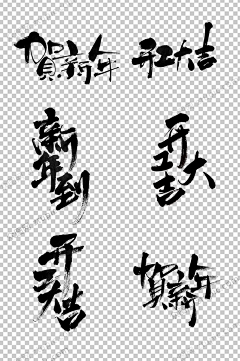 贺新年
开工大吉
新年到
开工大吉
开工大吉
贺新年